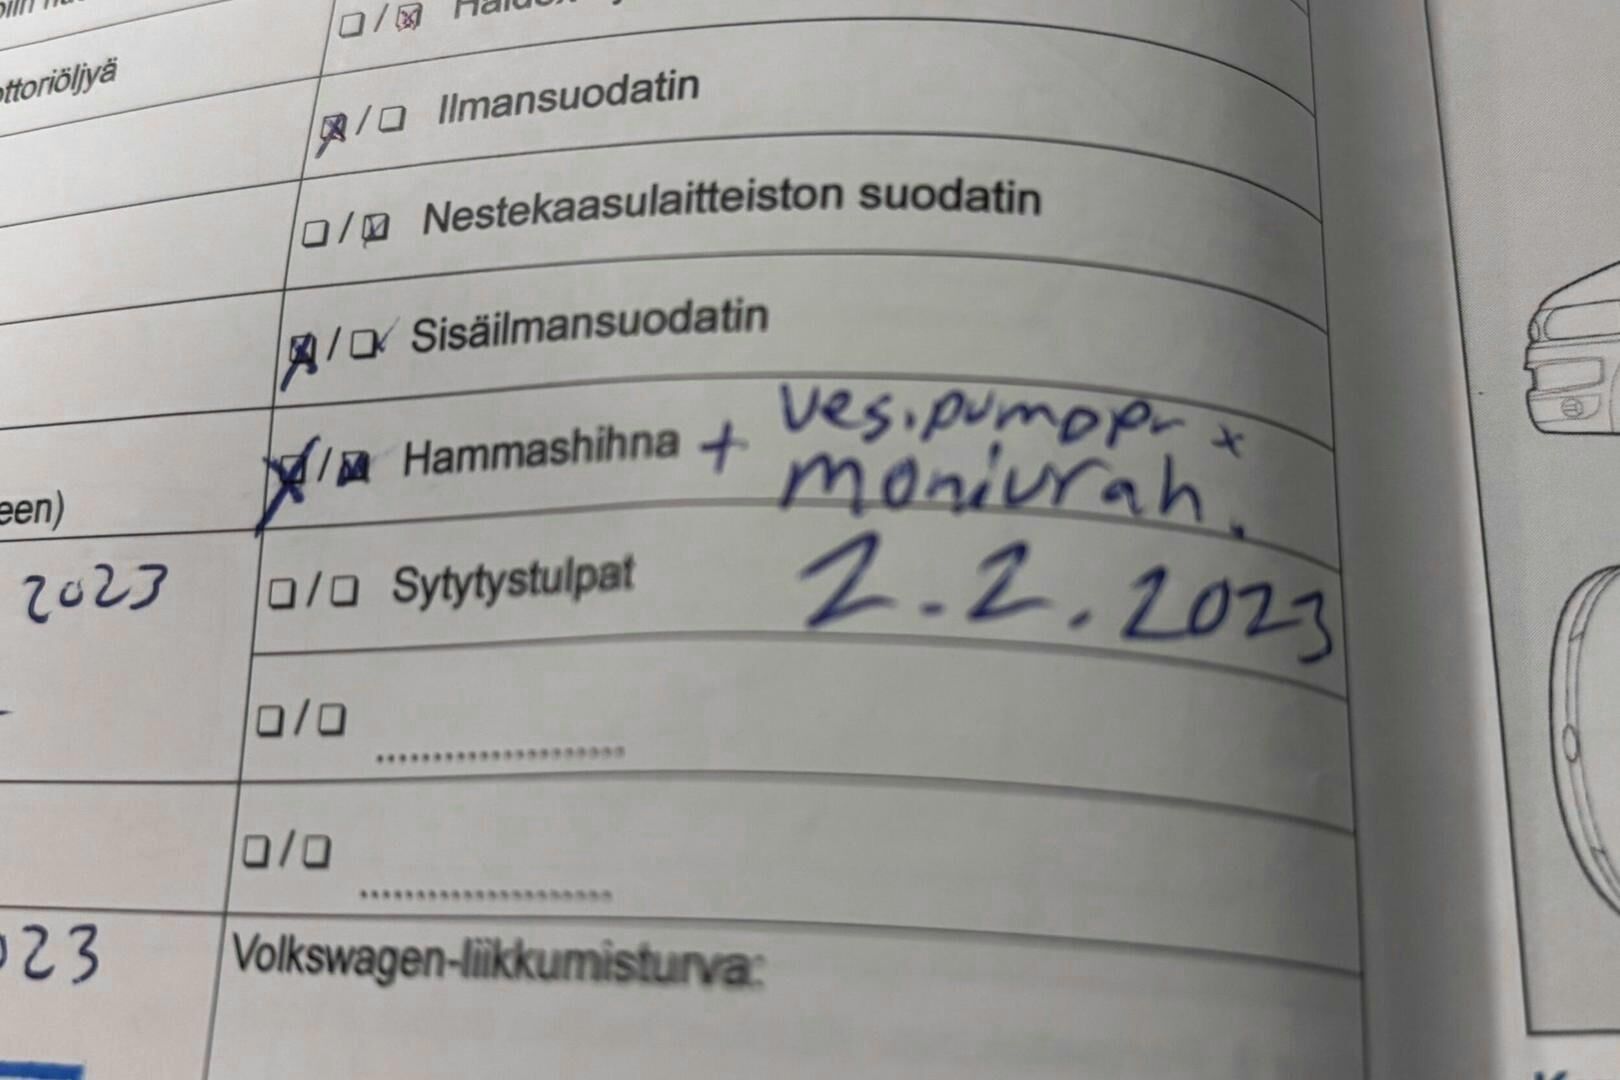 ottoriöljyä
☐ / ☒ Haldex
☒ / ☐ Ilmansuodatin
☐ / ☑ Nestekaasulaitteiston suodatin
☒ / ☐ Sisäilmansuodatin
☒ / ☒ Hammashihna + ves.pumppr x
moniurah.
een)
2023
☐ / ☐ Sytytystulpat 2.2.2023
☐ / ☐ ....................
☐ / ☐ ....................
023
Volkswagen-liikkumisturva: